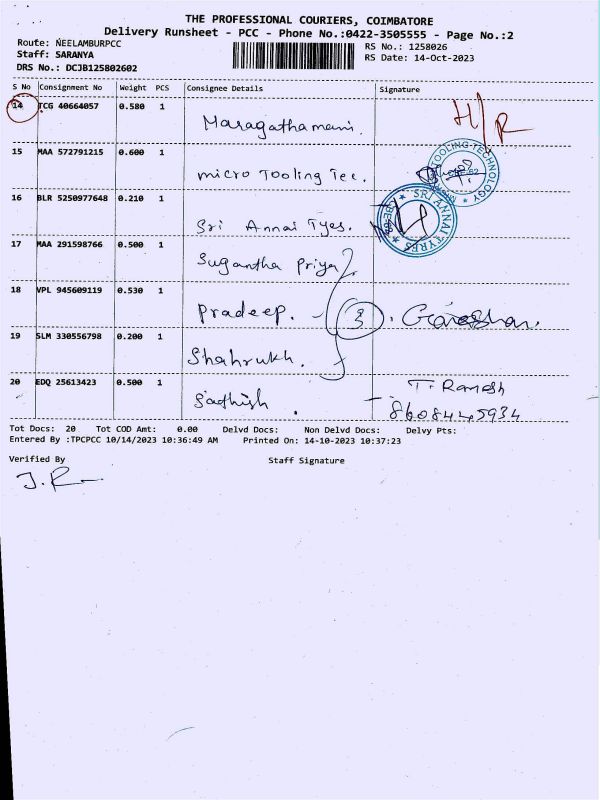 THE PROFESSIONAL COURIERS, COIMBATORE
Delivery Runsheet - PCC - Phone No.:0422-3505555 - Page No.:2
Route: NEELAMBURPCC
RS No.: 1258026
Staff: SARANYA
RS Date: 14-Oct-2023
DRS No.: DCJB125802602
S No Consignment No Weight PCS Consignee Details Signature
14 TCG 40664057 0.580 1 Maragathamani. H/R
15 MAA 572791215 0.600 1 micro Tooling Tec. TOOLING-TECHNOLOGY
16 BLR 5250977648 0.210 1 Sri Annai Tyes. SRI ANNAI TYRES
17 MAA 291598766 0.500 1 Sugantha Priya
18 VPL 945609119 0.530 1 Pradeep. 3
19 SLM 330556798 0.200 1 Shahrukh.
20 EDQ 25613423 0.500 1 Sadhish . T. Ramesh
8608445934
Tot Docs: 20 Tot COD Amt: 0.00 Delvd Docs: Non Delvd Docs: Delvy Pts:
Entered By :TPCPCC 10/14/2023 10:36:49 AM Printed On: 14-10-2023 10:37:23
Verified By Staff Signature
J.R